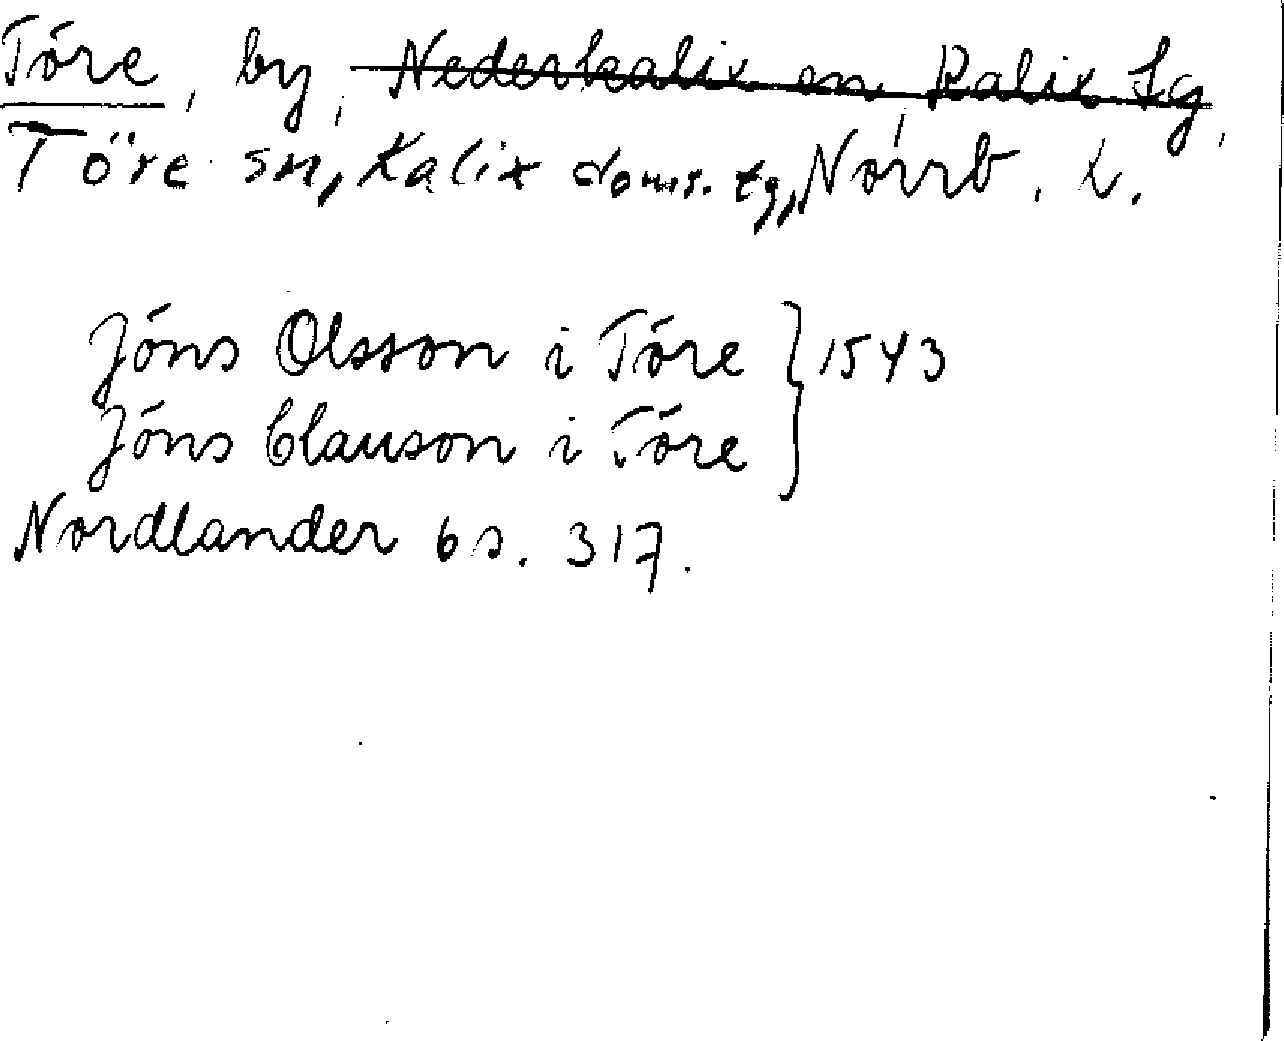 Töre, by, Nederkalix sn, Kalix tg,
Töre sn, Kalix doms. tg, Norrb. L.
Jöns Olsson i Töre } 1543
Jöns Clauson i Töre
Nordlander 6 s. 317.